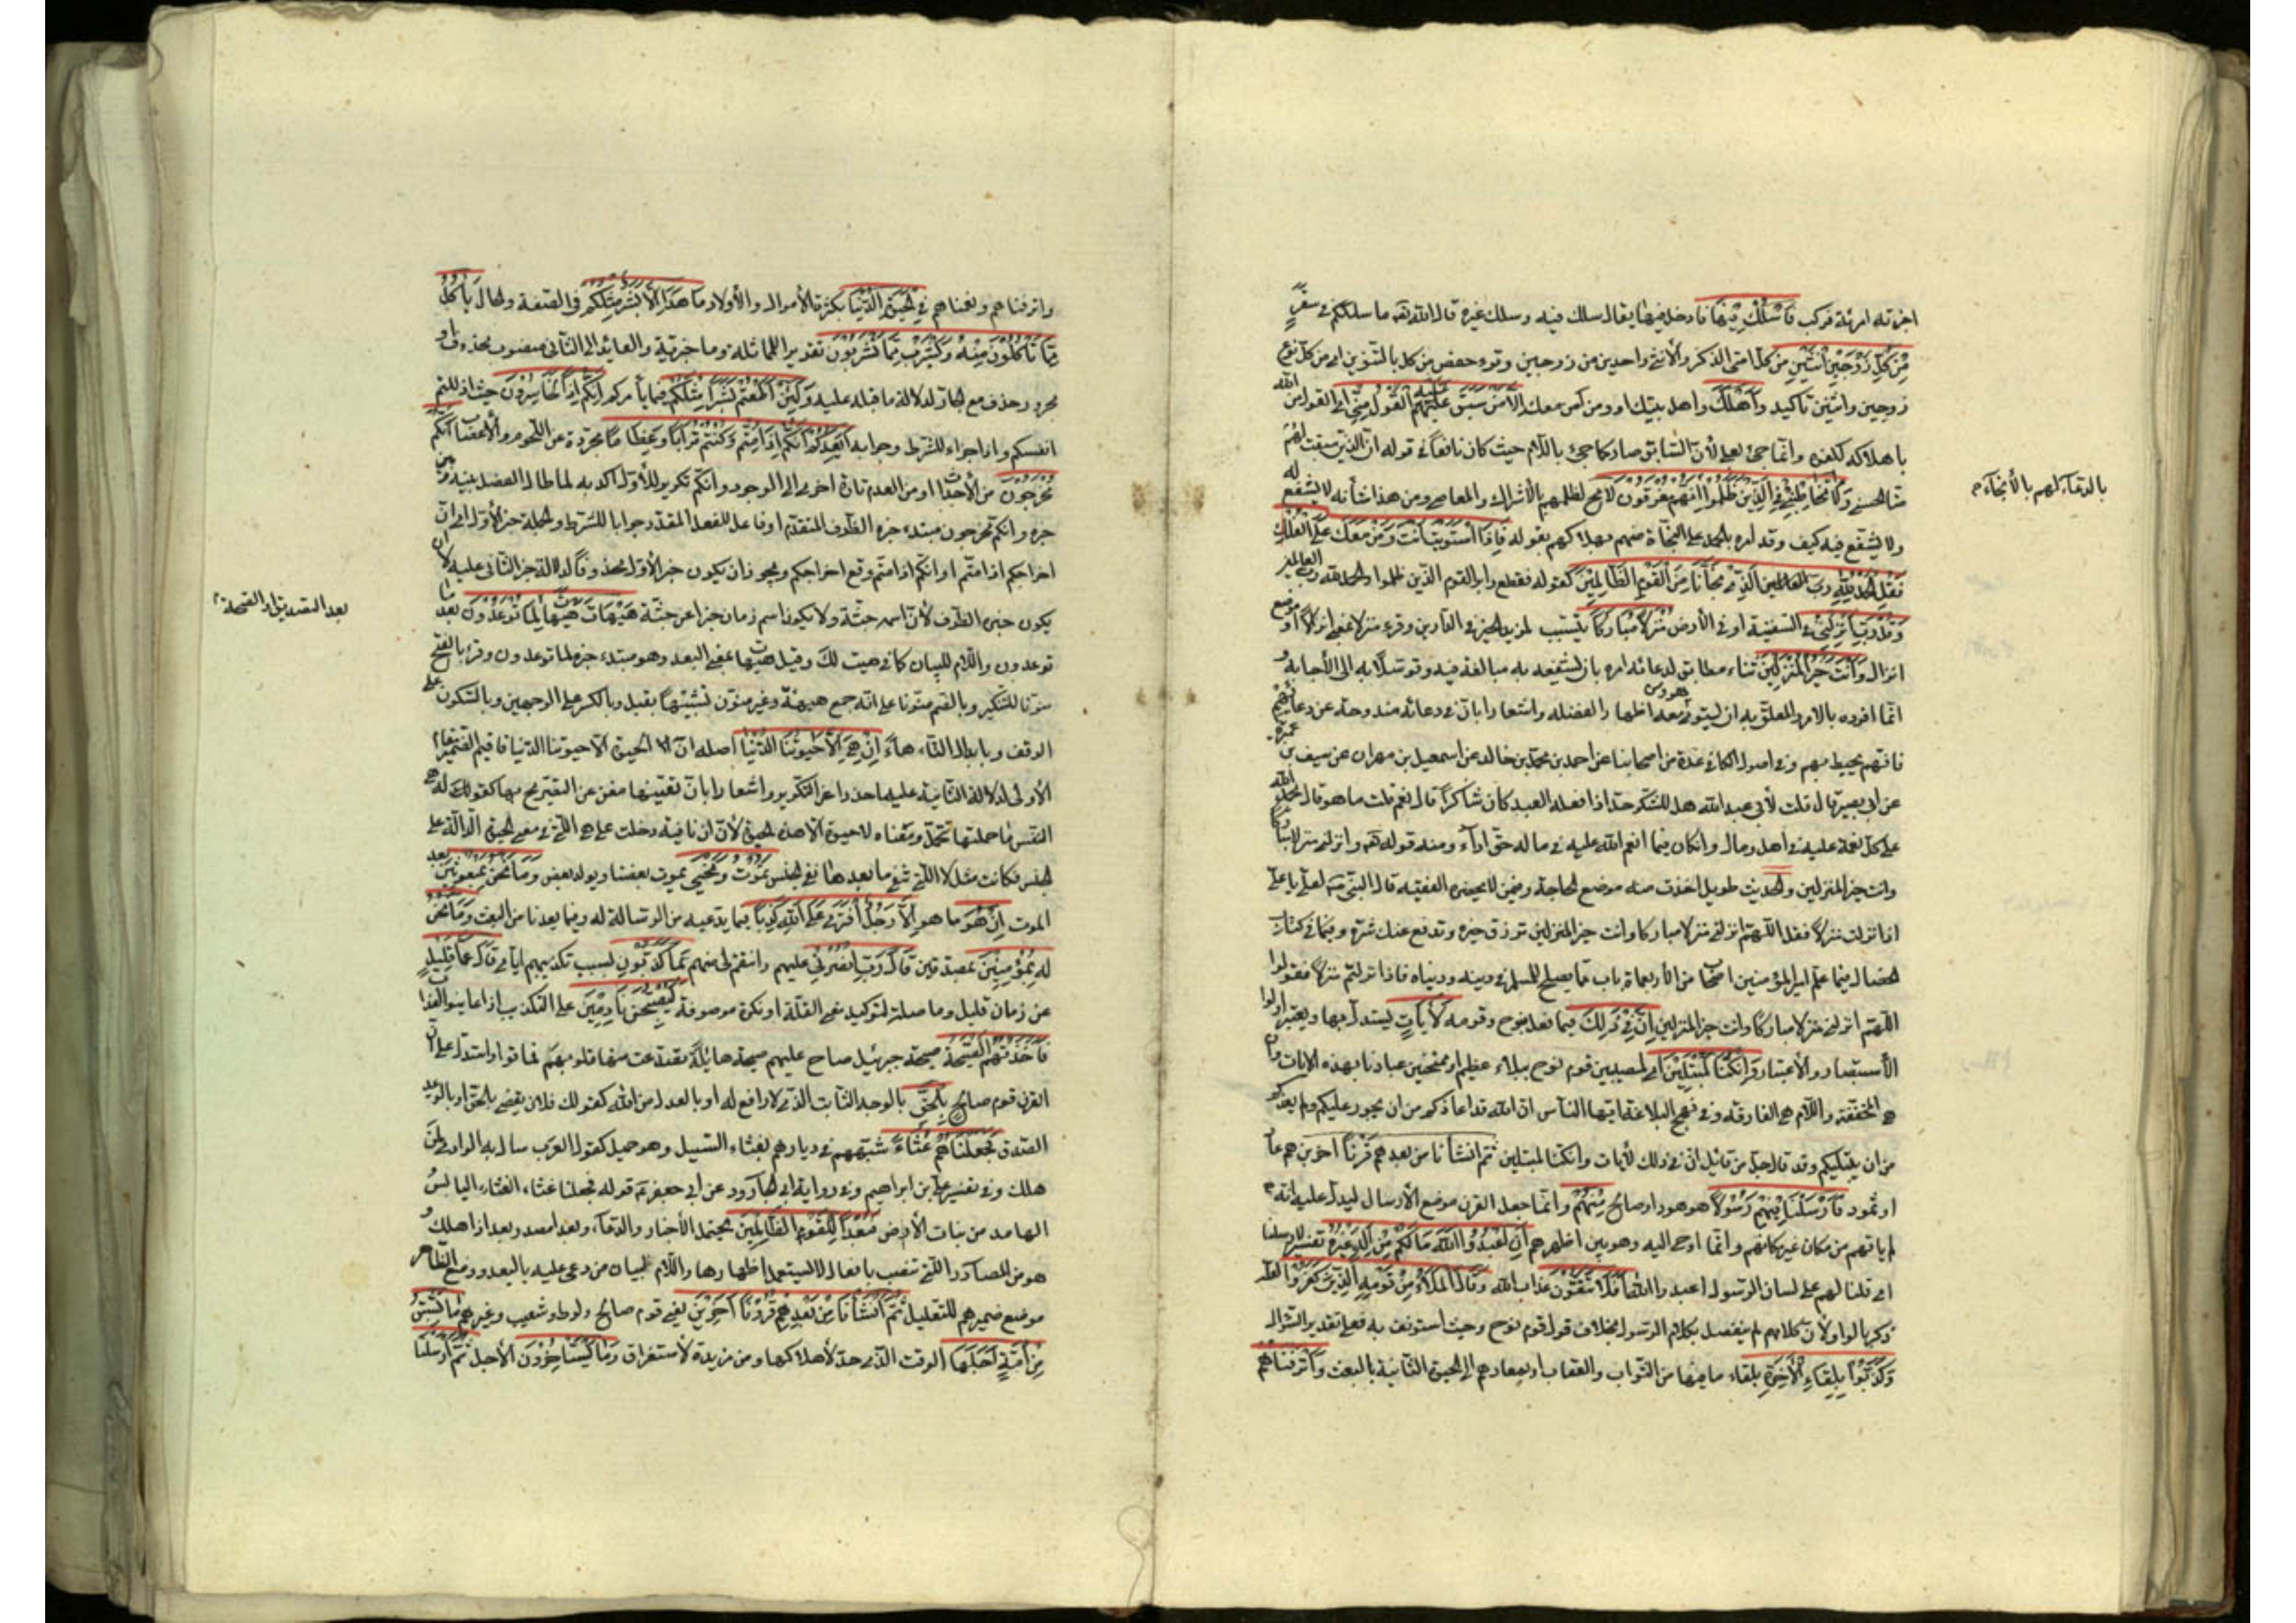 اخبرته امرئته فركب فَاسْلُكْ فِيهَا فادخل فيها يقال سلك فيه وسلك غيره قال الله تعه ما سلككم في سقر
مِنْ كُلٍّ زَوْجَيْنِ اثْنَيْنِ من كل امتي الذكر والأنثى واحدين من زوجين وقرء حفص من كل بالتنوين اي من كل نوع
زوجين واثنين تاكيد وَأَهْلَكَ واهل بيتك او ومن آمن معك إلا مَنْ سَبَقَ عَلَيْهِ الْقَوْلُ مِنْهُمْ اي القول من الله
باهلاكه لكفره وانما جئ بعلى لأن السابق ضار كما جئ باللام حيث كان نافعا في قوله ان الذين سبقت لهم
منا الحسنى وَلَا تُخَاطِبْنِي فِي الَّذِينَ ظَلَمُوا إِنَّهُمْ مُغْرَقُونَ لا محٓ لظلمهم بالأشراك والمعاصي ومن هذا شأنه لا يشفع له
بالدعاء لهم بالأنجاء م
ولا يشفع فيه كيف وقد امره بالحمد على النجاة منهم بهلاكهم بقوله فَإِذَا اسْتَوَيْتَ أَنْتَ وَمَنْ مَعَكَ عَلَى الْفُلْكِ
فَقُلِ الْحَمْدُ لِلَّهِ الَّذِي نَجَّانَا مِنَ الْقَوْمِ الظَّالِمِينَ كقوله فقطع دابر القوم الذين ظلموا والحمد لله رب العالمين
وَقُلْ رَبِّ أَنْزِلْنِي في السفينة او في الأرض مُنْزَلًا مُبَارَكًا يتسبب لمزيد الخير في الدارين وقرء منزلا بمعنى انزالا او موضع
انزال وَأَنْتَ خَيْرُ الْمُنْزِلِينَ ثناء مطابق لدعائه امره بان يشفعه به مبالغة فيه وتوسلا به الى الأجابة و
انما افرده بالامر والمعلق به ان يستوي هو ومن معه اظهارا لفضله واشعارا بان في دعائه مندوحة عن دعائهم
فانه يحيط بهم وفي اصول الكافي عدة من اصحابنا عن احمد بن محمد بن خالد عن اسمعيل بن مهران عن سيف بن عميرة
عن ابي بصير قال قلت لأبي عبد الله هل للشكر حد اذا فعله العبد كان شاكرا قال نعم قلت ما هو قال يحمد الله
على كل نعمة عليه في اهل ومال وان كان فيما انعم الله عليه في ماله حق اداه ومنه قوله تعه وانزلني منزلا مباركا
وانت خير المنزلين والحديث طويل اخذت منه موضع الحاجة وفي من لا يحضره الفقيه قال النبي ص لعلي يا علي
اذا نزلت منزلا فقل اللهم انزلني منزلا مباركا وانت خير المنزلين ترزق خيره وتدفع عنك شره وفي كتاب
الخصال فيما علم امير المؤمنين اصحابه من الأربعمأة باب مما يصلح للمسلم في دينه ودنياه فاذا نزلتم منزلا فقولوا
اللهم انزلنا منزلا مباركا وانت خير المنزلين إِنَّ فِي ذَلِكَ فيما فعل بنوح وقومه لَآيَاتٍ يستدل بها ويعتبر اولوا
الأستبصار والأعتبار وَإِنْ كُنَّا لَمُبْتَلِينَ اي لمصيبين قوم نوح ببلاء عظيم او ممتحنين عبادنا بهذه الايات وان
هي المخففة واللام هي الفارقة وفي نهج البلاغة ايها الناس ان الله قد اعاذكم من ان يجور عليكم ولم يعذكم
من ان يبتليكم وقد قال جل من قائل ان في ذلك لأيات وان كنا لمبتلين ثُمَّ أَنْشَأْنَا مِنْ بَعْدِهِمْ قَرْنًا آخَرِينَ هم عاد
او ثمود فَأَرْسَلْنَا فِيهِمْ رَسُولًا هو هود او صالح مِنْهُمْ وانما جعل القرن موضع الأرسال ليدل على انه
لم ياتهم من مكان غير مكانهم وانما اوحى اليه وهو بين اظهرهم أَنِ اعْبُدُوا اللَّهَ مَا لَكُمْ مِنْ إِلَهٍ غَيْرُهُ تفسير لارسلنا
اي قلنا لهم على لسان الرسول اعبدوا الله أَفَلَا تَتَّقُونَ عذاب الله وَقَالَ الْمَلَأُ مِنْ قَوْمِهِ الَّذِينَ كَفَرُوا لعله
ذكر بالواو لأن كلامهم لم يتصل بكلام الرسول بخلاف قول قوم نوح وحيث استونف به فعلى تقدير السؤال
وَكَذَّبُوا بِلِقَاءِ الْآخِرَةِ بلقاء ما فيها من الثواب والعقاب او بمعادهم الى الحيوة الثانية بالبعث وَأَتْرَفْنَاهُمْ
واترفناهم ونعمناهم فِي الْحَيَاةِ الدُّنْيَا بكثرة الأموال والأولاد مَا هَذَا إِلَّا بَشَرٌ مِثْلُكُمْ في الصفة والحال يَأْكُلُ
مِمَّا تَأْكُلُونَ مِنْهُ وَيَشْرَبُ مِمَّا تَشْرَبُونَ تقدير للمماثلة وما خبرية والعائد الى الثاني منصوب محذوف او
مجرور حذف مع الجار لدلالة ما قبله عليه وَلَئِنْ أَطَعْتُمْ بَشَرًا مِثْلَكُمْ فيما يأمركم إِنَّكُمْ إِذًا لَخَاسِرُونَ حيث اذللتم
انفسكم واذا جزاء للشرط وجوابه أَيَعِدُكُمْ أَنَّكُمْ إِذَا مِتُّمْ وَكُنْتُمْ تُرَابًا وَعِظَامًا مجردة عن اللحوم والأعصاب أَنَّكُمْ
مُخْرَجُونَ من الأجداث او من العدم تارة اخرى الى الوجود وانكم تكرير للأول اكد به لما طال الفصل بينه وبين
خبره وانكم مخرجون مبتدء خبره الظرف المتقدم او فاعل للفعل المقدر جوابا للشرط والجملة خبر الأول اي ان
اخراجكم اذا متم او انكم اذا متم وقع اخراجكم ويجوز ان يكون خبر الأول محذوفا لدلالة خبر الثاني عليه لا ان
يكون خبره الظرف لأن اسمه جثة ولا يكون اسم زمان خبرا عن جثة هَيْهَاتَ هَيْهَاتَ لِمَا تُوعَدُونَ بعد ما
بعد التصديق او الصحة م
توعدون واللام للبيان كما في هيت لك وقيل هيهات بمعنى البعد وهو مبتدء خبره لما توعدون وقرء بالفتح
منونا للتنكير وبالضم منونا على انه جمع هيهة وغير منون تشبيها بقبل وبالكسر على الوجهين وبالسكون على
الوقف وبابدال التاء هاء إِنْ هِيَ إِلَّا حَيَاتُنَا الدُّنْيَا اصله ان الحيوة الا حيوتنا الدنيا فاقيم الضمير مقام
الأولى لدلالة الثانية عليها حذرا عن التكرير واشعارا بان تعينها مغن عن التصريح بها كقولك هي
النفس ما حملتها تتحمل ومعناه لا حيوة الا هذه الحيوة لأن ان نافية دخلت على هي اللتي في معنى الحيوة الدالة على
الجنس فكانت مثل لا اللتي تنفي ما بعدها نفي الجنس نَمُوتُ وَنَحْيَى يموت بعضنا ويولد بعض وَمَا نَحْنُ بِمَبْعُوثِينَ بعد
الموت إِنْ هُوَ ما هو إِلَّا رَجُلٌ افْتَرَى عَلَى اللَّهِ كَذِبًا فيما يدعيه من الرسالة له وفيما يعدنا من البعث وَمَا نَحْنُ
لَهُ بِمُؤْمِنِينَ بمصدقين قَالَ رَبِّ انْصُرْنِي عليهم وانتقم لي منهم بِمَا كَذَّبُونِ بسبب تكذيبهم اياي قَالَ عَمَّا قَلِيلٍ
عن زمان قليل وما صلة لتوكيد معنى القلة او نكرة موصوفة لَيُصْبِحُنَّ نَادِمِينَ على التكذيب اذا عاينوا العذاب
فَأَخَذَتْهُمُ الصَّيْحَةُ صيحة جبرئيل صاح عليهم صيحة هائلة تصدعت منها قلوبهم فماتوا واستدل على ان
القرن قوم صالح بِالْحَقِّ بالوجه الثابت الذي لا رافع له او بالعدل من الله كقولك فلان يقضي بالحق او بالوعد
الصدق فَجَعَلْنَاهُمْ غُثَاءً شبههم في ديارهم بغثاء السيل وهو حميل كقول العرب سال به الوادي لمن
هلك وفي تفسير علي بن ابراهيم وفي رواية ابي الجارود عن ابي جعفر ع قوله فجعلناهم غثاء، الغثاء اليابس
الهامد من نبات الأرض فَبُعْدًا لِلْقَوْمِ الظَّالِمِينَ يحتمل الأخبار والدعاء، وبعدا مصدر بعد اذا هلك و
هو من المصادر اللتي تنصب بافعال لا يستعمل اظهارها واللام لبيان من دعي عليه بالبعد ووضع الظاهر
موضع ضميرهم للتعليل ثُمَّ أَنْشَأْنَا مِنْ بَعْدِهِمْ قُرُونًا آخَرِينَ يعني قوم صالح ولوط وشعيب وغيرهم مَا تَسْبِقُ
مِنْ أُمَّةٍ أَجَلَهَا الوقت الذي حد لأهلاكها ومن مزيدة لأستغراق وَمَا يَسْتَأْخِرُونَ الأجل ثُمَّ أَرْسَلْنَا